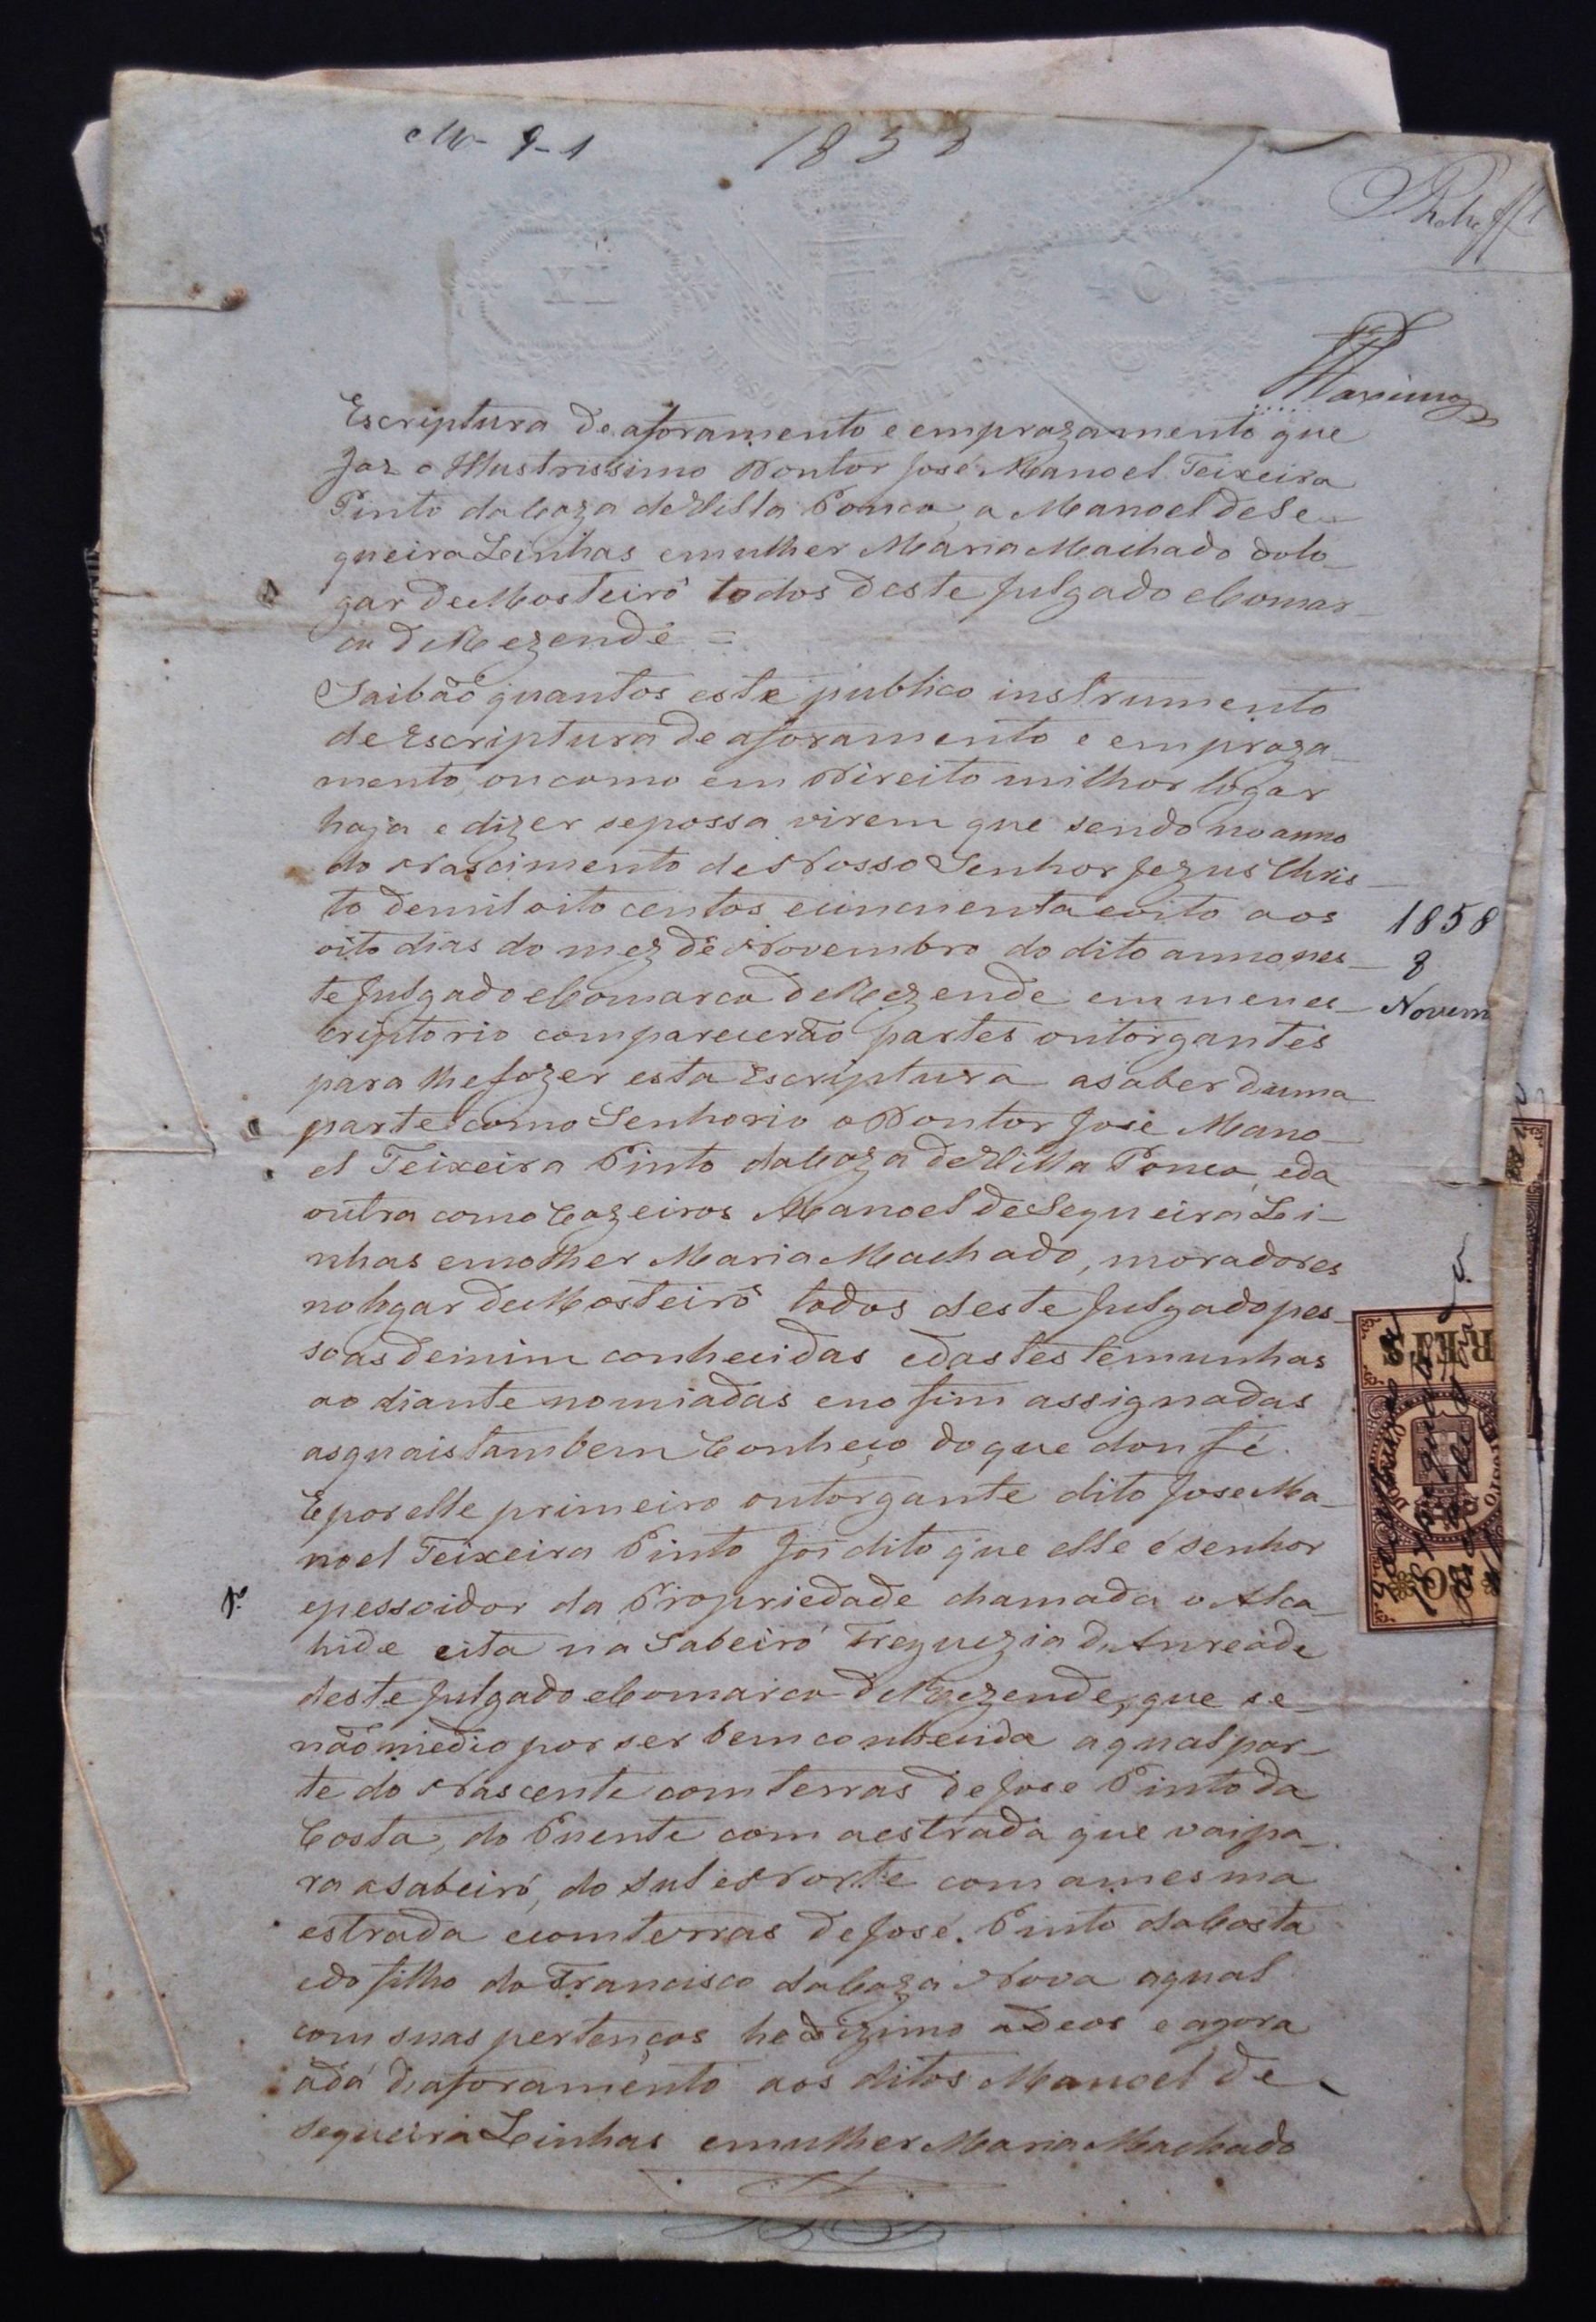 1858
Escriptura de aforamento e emprazamento que
faz o Illustrissimo Doutor José Manoel Teixeira
Pinto da Caza de Villa Pouca, a Manoel de Se-
queira Leinhas e mulher Maria Machado do lo-
gar de Mosteirô todos deste Julgado e Comar-
ca de Rezende =
Saibão quantos este publico instrumento
de Escriptura de aforamento e empraza-
mento, ou como em Direito milhor logar
haja e dizer se possa virem que sendo no anno
do Nascimento de Nosso Senhor Jezus Chris-
to de mil oito centos e cincuenta e oito aos
1858
oito dias do mez de Novembro do dito anno nes-
8
te Julgado e Comarca de Rezende em meu es-
Novem
criptorio comparecerão partes outorgantes
para lhe fazer esta Escriptura a saber duma
parte como Senhorio o Doutor José Mano-
el Teixeira Pinto da Caza de Villa Pouca, e da
outra como Cazeiros Manoel de Sequeira Lei-
nhas e molher Maria Machado, moradores
no logar de Mosteirô todos deste Julgado pes-
soas de mim conhecidas e das testemunhas
ao diante nomiadas e no fim assignadas
as quais tambem Conheço do que dou fé.
E por elle primeiro outorgante dito José Ma-
noel Teixeira Pinto foi dito que elle é senhor
e pessoidor da Propriedade chamada o Alca-
hide cita na Sabeiró Freguezia d'Anreade
deste Julgado e Comarca de Rezende, que se
não medio por ser bem conhecida a qual par-
te do Nascente com terras de José Pinto da
Costa, do Puente com a estrada que vai pa-
ra a Sabeiró, do Sul e Norte com a mesma
estrada e com terras de José Pinto da Costa
e do filho do Francisco da Caza Nova a qual
com suas pertenças he dizimo a Deos e agora
a dá d'aforamento aos ditos Manoel de
Sequeira Leinhas e mulher Maria Machado
REIS